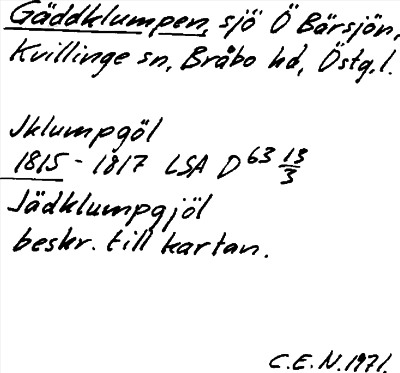 Gäddklumpen, sjö Ö Bärsjön,
Kvillinge sn, Bråbo hd, Östg.l.
Jklumpgöl
1815 - 1817 LSA D 63 13/3
Jädklumpgjöl
beskr. till kartan.
C.E.N. 1971.